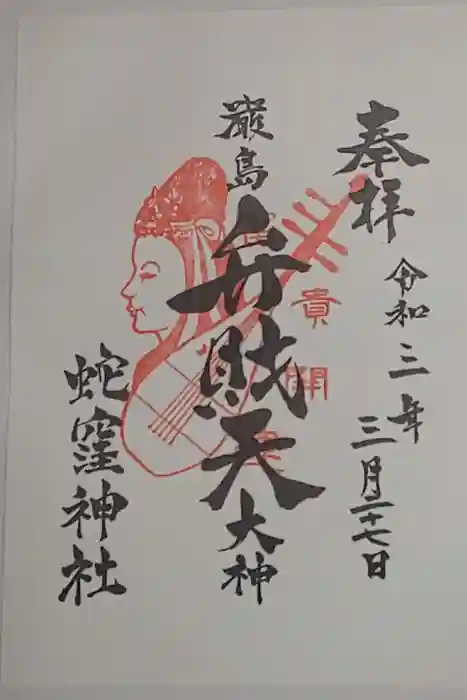 奉拝
令和三年
三月二十七日
厳島
弁財天
大神
貴
開
蛇窪神社